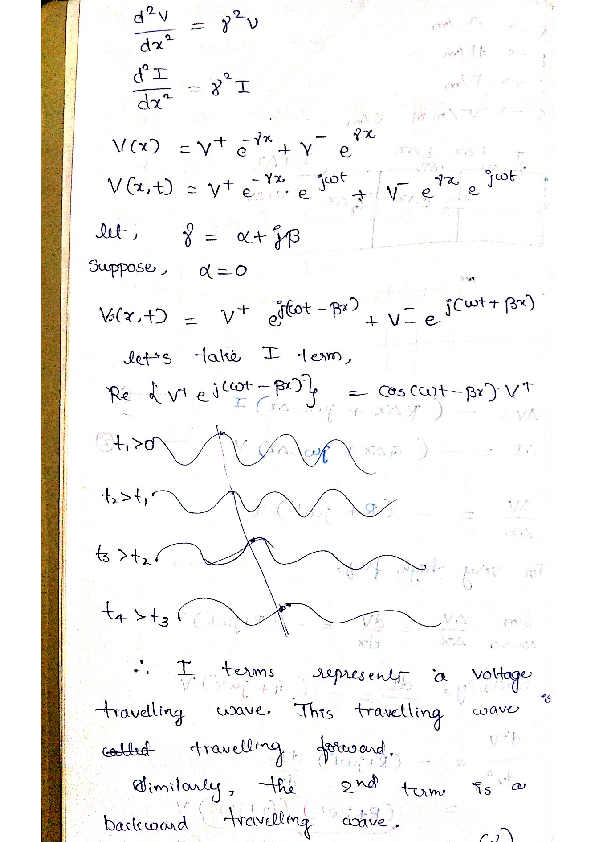 d²V/dx² = γ²V
d²I/dx² = γ²I
V(x) = V⁺ e^-γx + V⁻ e^γx
V(x,t) = V⁺ e^-γx . e^jωt + V⁻ e^γx e^jωt
let, γ = α + jβ
Suppose, α = 0
V(x,t) = V⁺ e^j(ωt - βx) + V⁻ e^j(ωt + βx)
let's take I term,
Re { V⁺ e^j(ωt - βx) } = cos(ωt - βx) V⁺
t₁>0
t₂>t₁
t₃>t₂
t₄>t₃
∴ I terms represents a voltage
travelling wave. This travelling wave is
called travelling forward.
Similarly, the 2nd term is a
backward travelling wave.